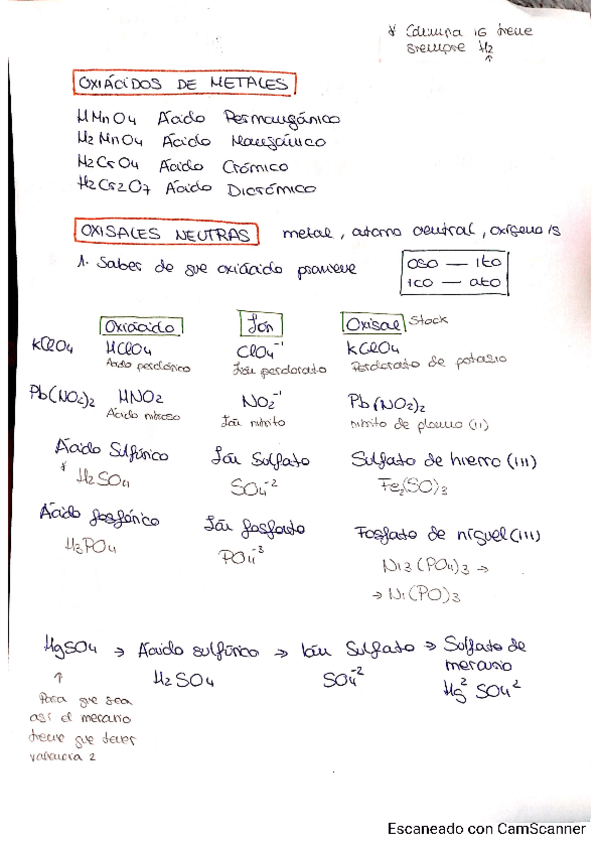 * Columna 16 tiene
siempre H2
OXIÁCIDOS DE METALES
HMnO4 Ácido Permangánico
H2MnO4 Ácido Mangánico
H2CrO4 Ácido Crómico
H2Cr2O7 Ácido Dicrómico
OXISALES NEUTRAS metal, átomo central, oxígeno/s
1. Saber de que oxiácido proviene
oso — ito
ico — ato
Oxiácido Ión Oxisal Stock
KClO4 HClO4 ClO4⁻¹ KClO4
Ácido perclórico Ión perclorato Perclorato de potasio
Pb(NO2)2 HNO2 NO2⁻¹ Pb(NO2)2
Ácido nitroso Ión nitrito nitrito de plomo (II)
Ácido Sulfúrico Ión Sulfato Sulfato de hierro (III)
* H2SO4 SO4⁻² Fe2(SO)3
Ácido fosfórico Ión fosfato Fosfato de níquel (III)
H3PO4 PO4⁻³ Ni3(PO4)3 →
→ Ni(PO)3
HgSO4 → Ácido sulfúrico → Ión Sulfato → Sulfato de
mercurio
↑ H2SO4 SO4⁻² Hg² SO4²
Para que sea
así el mercurio
tiene que tener
valencia 2
Escaneado con CamScanner